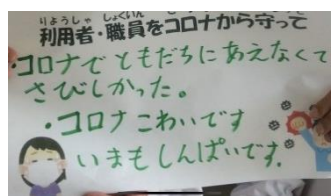 りようしゃ しょくいん
利用者・職員をコロナから守って
・コロナでともだちにあえなくて
さびしかった。
・コロナこわいです
いまもしんぱいです.